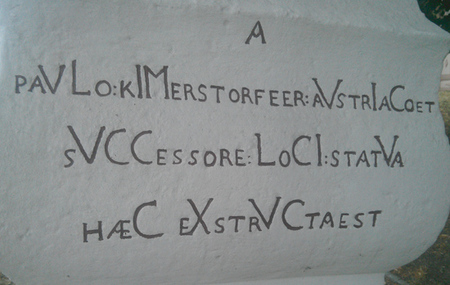 A
PAVLO:KIMERSTORFEER:AVSTRIACOET
SVCCESSORE:LOCI:STATVA
HÆC EXSTRVCTAEST